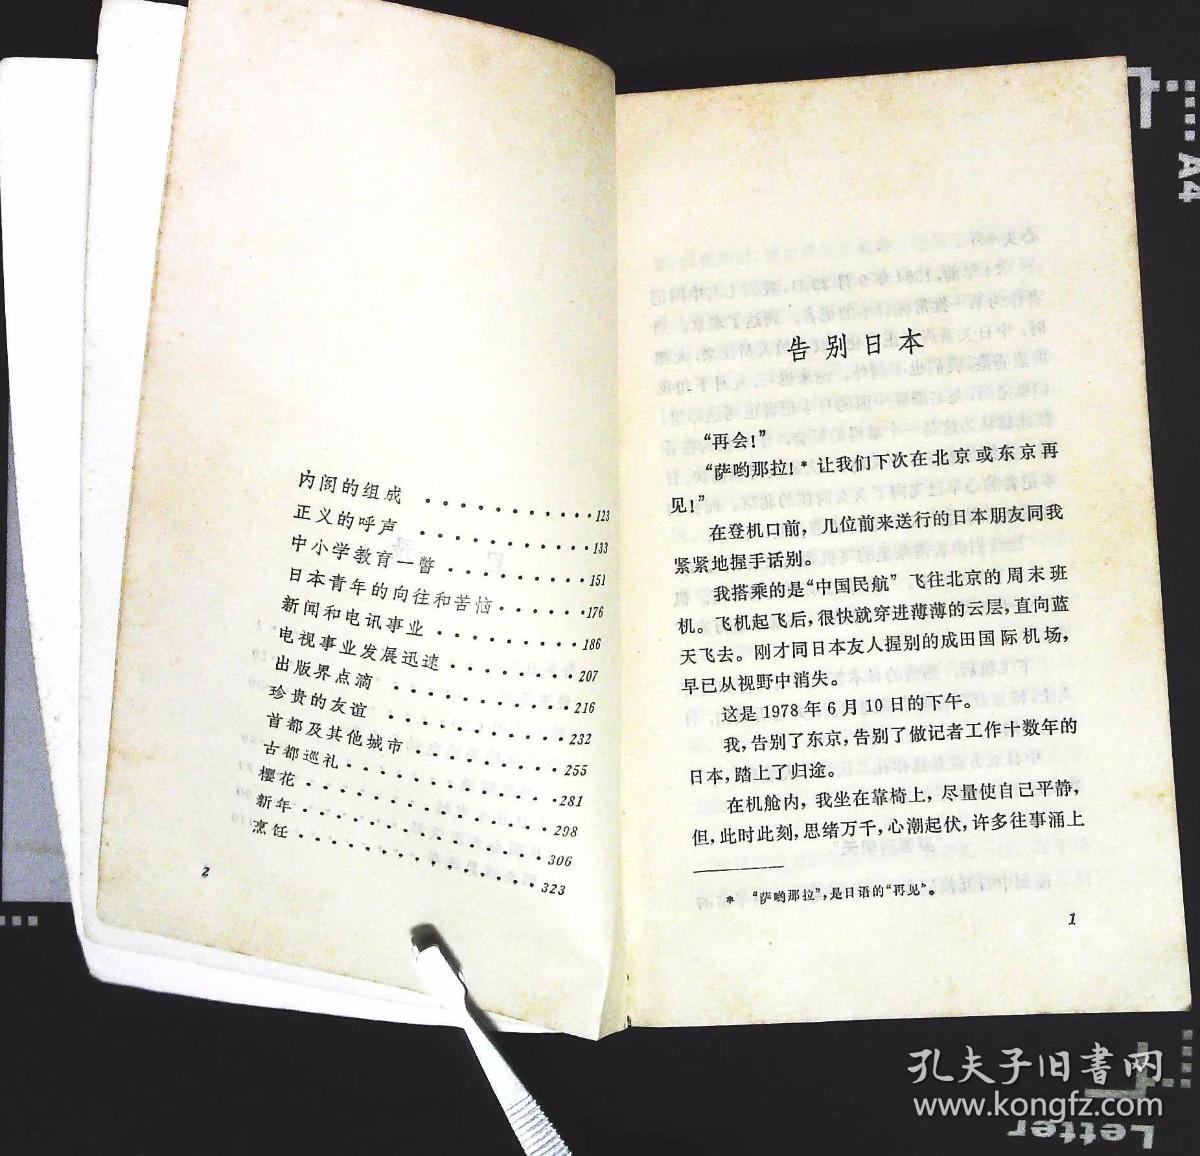 内阁的组成 ・・・・・・・・・・・123
正义的呼声 ・・・・・・・・・・・133
中小学教育一瞥 ・・・・・・・・・151
日本青年的向往和苦恼・・・・・・・176
新闻和电讯事业 ・・・・・・・・・186
电视事业发展迅速 ・・・・・・・・207
出版界点滴 ・・・・・・・・・・・216
珍贵的友谊 ・・・・・・・・・・・232
首都及其他城市 ・・・・・・・・・255
古都巡礼 ・・・・・・・・・・・・281
樱花 ・・・・・・・・・・・・・・298
新年 ・・・・・・・・・・・・・・306
烹饪 ・・・・・・・・・・・・・・323
2
告别日本
“再会!”
“萨哟那拉!* 让我们下次在北京或东京再
见!”
在登机口前,几位前来送行的日本朋友同我
紧紧地握手话别。
我搭乘的是“中国民航”飞往北京的周末班
机。飞机起飞后,很快就穿进薄薄的云层,直向蓝
天飞去。刚才同日本友人握别的成田国际机场,
早已从视野中消失。
这是1978年6月10日的下午。
我,告别了东京,告别了做记者工作十数年的
日本,踏上了归途。
在机舱内,我坐在靠椅上,尽量使自己平静,
但,此时此刻,思绪万千,心潮起伏,许多往事涌上
* “萨哟那拉”,是日语的“再见”。
1
A4
孔夫子旧书网
www.kongfz.com
Letter